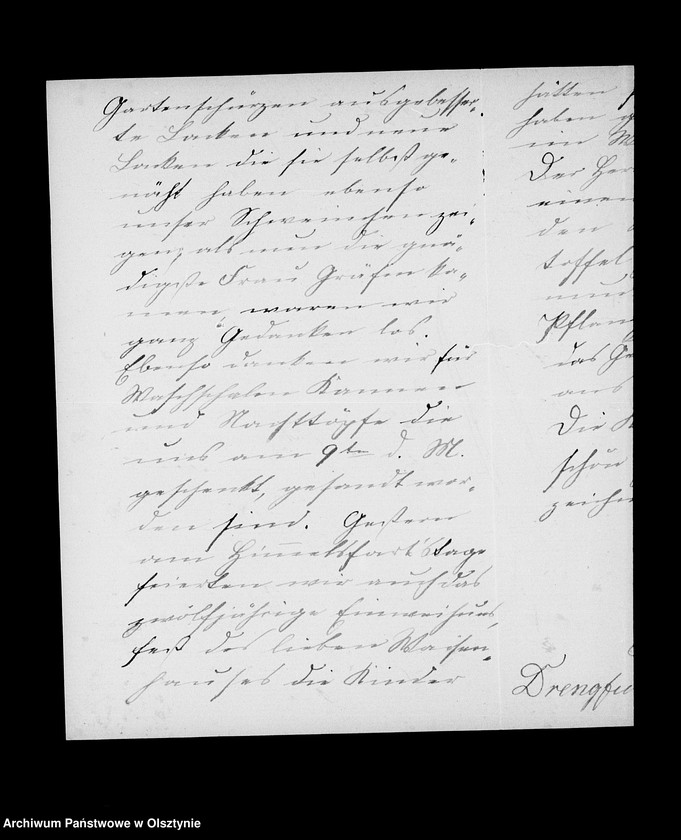 Gartenschürzen ausgebesser-
te Backen und neue
Backen die sie selbst ge-
näht haben ebenso
unser Schweinchen zei-
gen, als nun die gnä-
digste Frau Gräfin ka-
men, waren wir
ganz Gedanken los.
Ebenso danken wir für
Waschschalen Kannen
und Nachttöpfe die
uns am 9ten d. M.
geschenkt, gesandt wor-
den sind. Gestern
am Himmelsfart'stage
feierten wir auch das
zwölfjährige Einweihuns,
fest des lieben Waisen-
hauses die Kinder
hätten
haben
im
Der
einen
den
toffel
und
Pflan
das
aus
Die
schön
zeichn
Drengfu
Archiwum Państwowe w Olsztynie